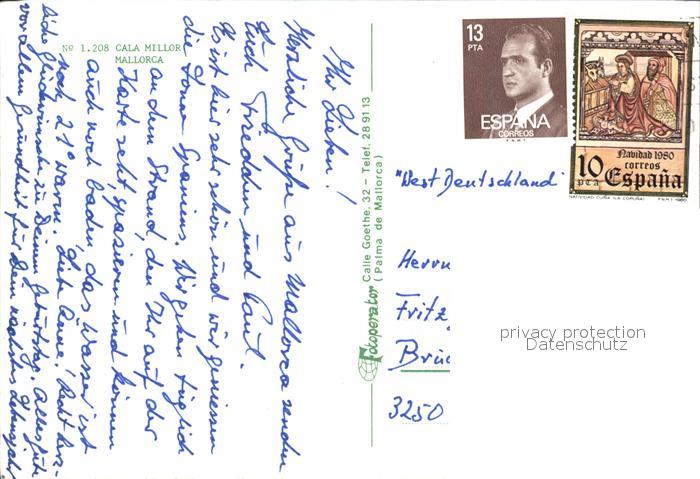 Nº 1.208 CALA MILLOR
MALLORCA
Ihr Lieben!
Herzliche Grüße aus Mallorca senden
Euch Friedchen und Paul.
Es ist hier sehr schön und wir geniessen
die Sonne Spaniens. Wir gehen täglich
an dem Strand, den Ihr auf der
Karte seht, spazieren und können
auch noch baden, das Wasser ist
noch 21° warm. Liebe! Recht herz-
liche Glückwünsche zu Deinem Geburtstag. Alles Gute
vor allem Gesundheit für Dein nächstes Lebensjahr
Fotoperator Calle Goethe, 32 - Telef. 28 91 13
(Palma de Mallorca)
13
PTA
ESPAÑA
CORREOS
F.N.M.T.
Navidad 1980
correos
10
pta
España
NATIVIDAD CUIÑA (LA CORUÑA) F.N.M.T. 1980
"West Deutschland"
Herrn
Fritz
Brüc
3250
privacy protection
Datenschutz